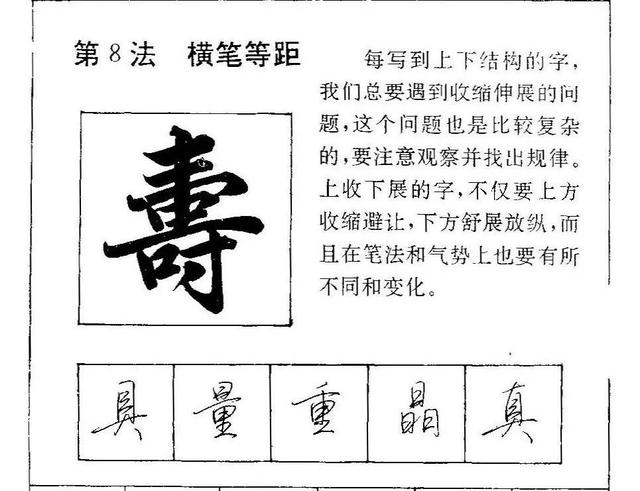 第8法 横笔等距
每写到上下结构的字，
我们总要遇到收缩伸展的问
题，这个问题也是比较复杂
的，要注意观察并找出规律。
上收下展的字，不仅要上方
收缩避让，下方舒展放纵，而
且在笔法和气势上也要有所
不同和变化。
壽
具 量 重 晶 真